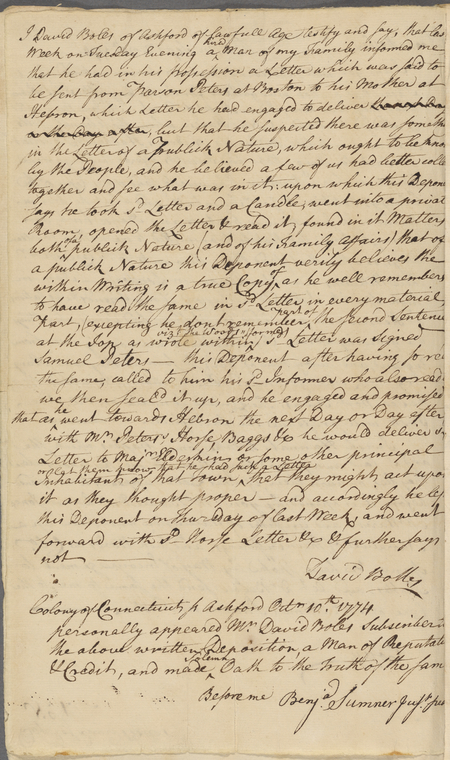 I David Boles of Ashford of Lawfull Age testify and say, that las
Week on Tuesday Evening a hird Man of my Family informed me
that he had in his Possession a Letter which was said to
be sent from Parson Peters at Boston to his Mother at
Hebron, which Letter he had engaged to deliver
but that he suspected there was somethi
in the Letter of a Publick Nature, which ought to be know
by the People, and he believed a few of us had better colle
together and see what was in it: upon which this Depone
says he took sd. Letter and a Candle, went into a privat
Room, opened the Letter & read it, found in it Matters
both of a publick Nature (and of his Family Affairs) that of
a publick Nature this Deponent verily believes the
within Writing is a true Copy of, as he well remembers
to have read the same in sd Letter, in every material
Part, (excepting he don't remember, part of the second Sentence
at the Top viz. as wrote within sd. Letter was Signed
Samuel Peters — this Deponent after having so re
the same, called to him his sd. Informer who also read
we then seal'd it up, and he engaged and promised
that as he went towards Hebron the next Day or Day after
with Mr. Peters's Horse Baggs &c he would deliver sd
Letter to Majr. Elderkin or some other principal
or let them know that he had such a Letter
Inhabitants of that Town, that they might act upon
it as they thought proper — and accordingly he lef
this Deponent on Thursday of last Week, and went
forward with sd. Horse Letter &c & further says
not —
David Bolles
Colony of Connecticut, ss Ashford Octr. 10th. 1774
personally appeared Mr. David Boles Subscriber
the above written Deposition, a Man of Reputati
& Credit, and made Solemn Oath to the Truth of the sam
Before me Benja. Sumner Just. pea